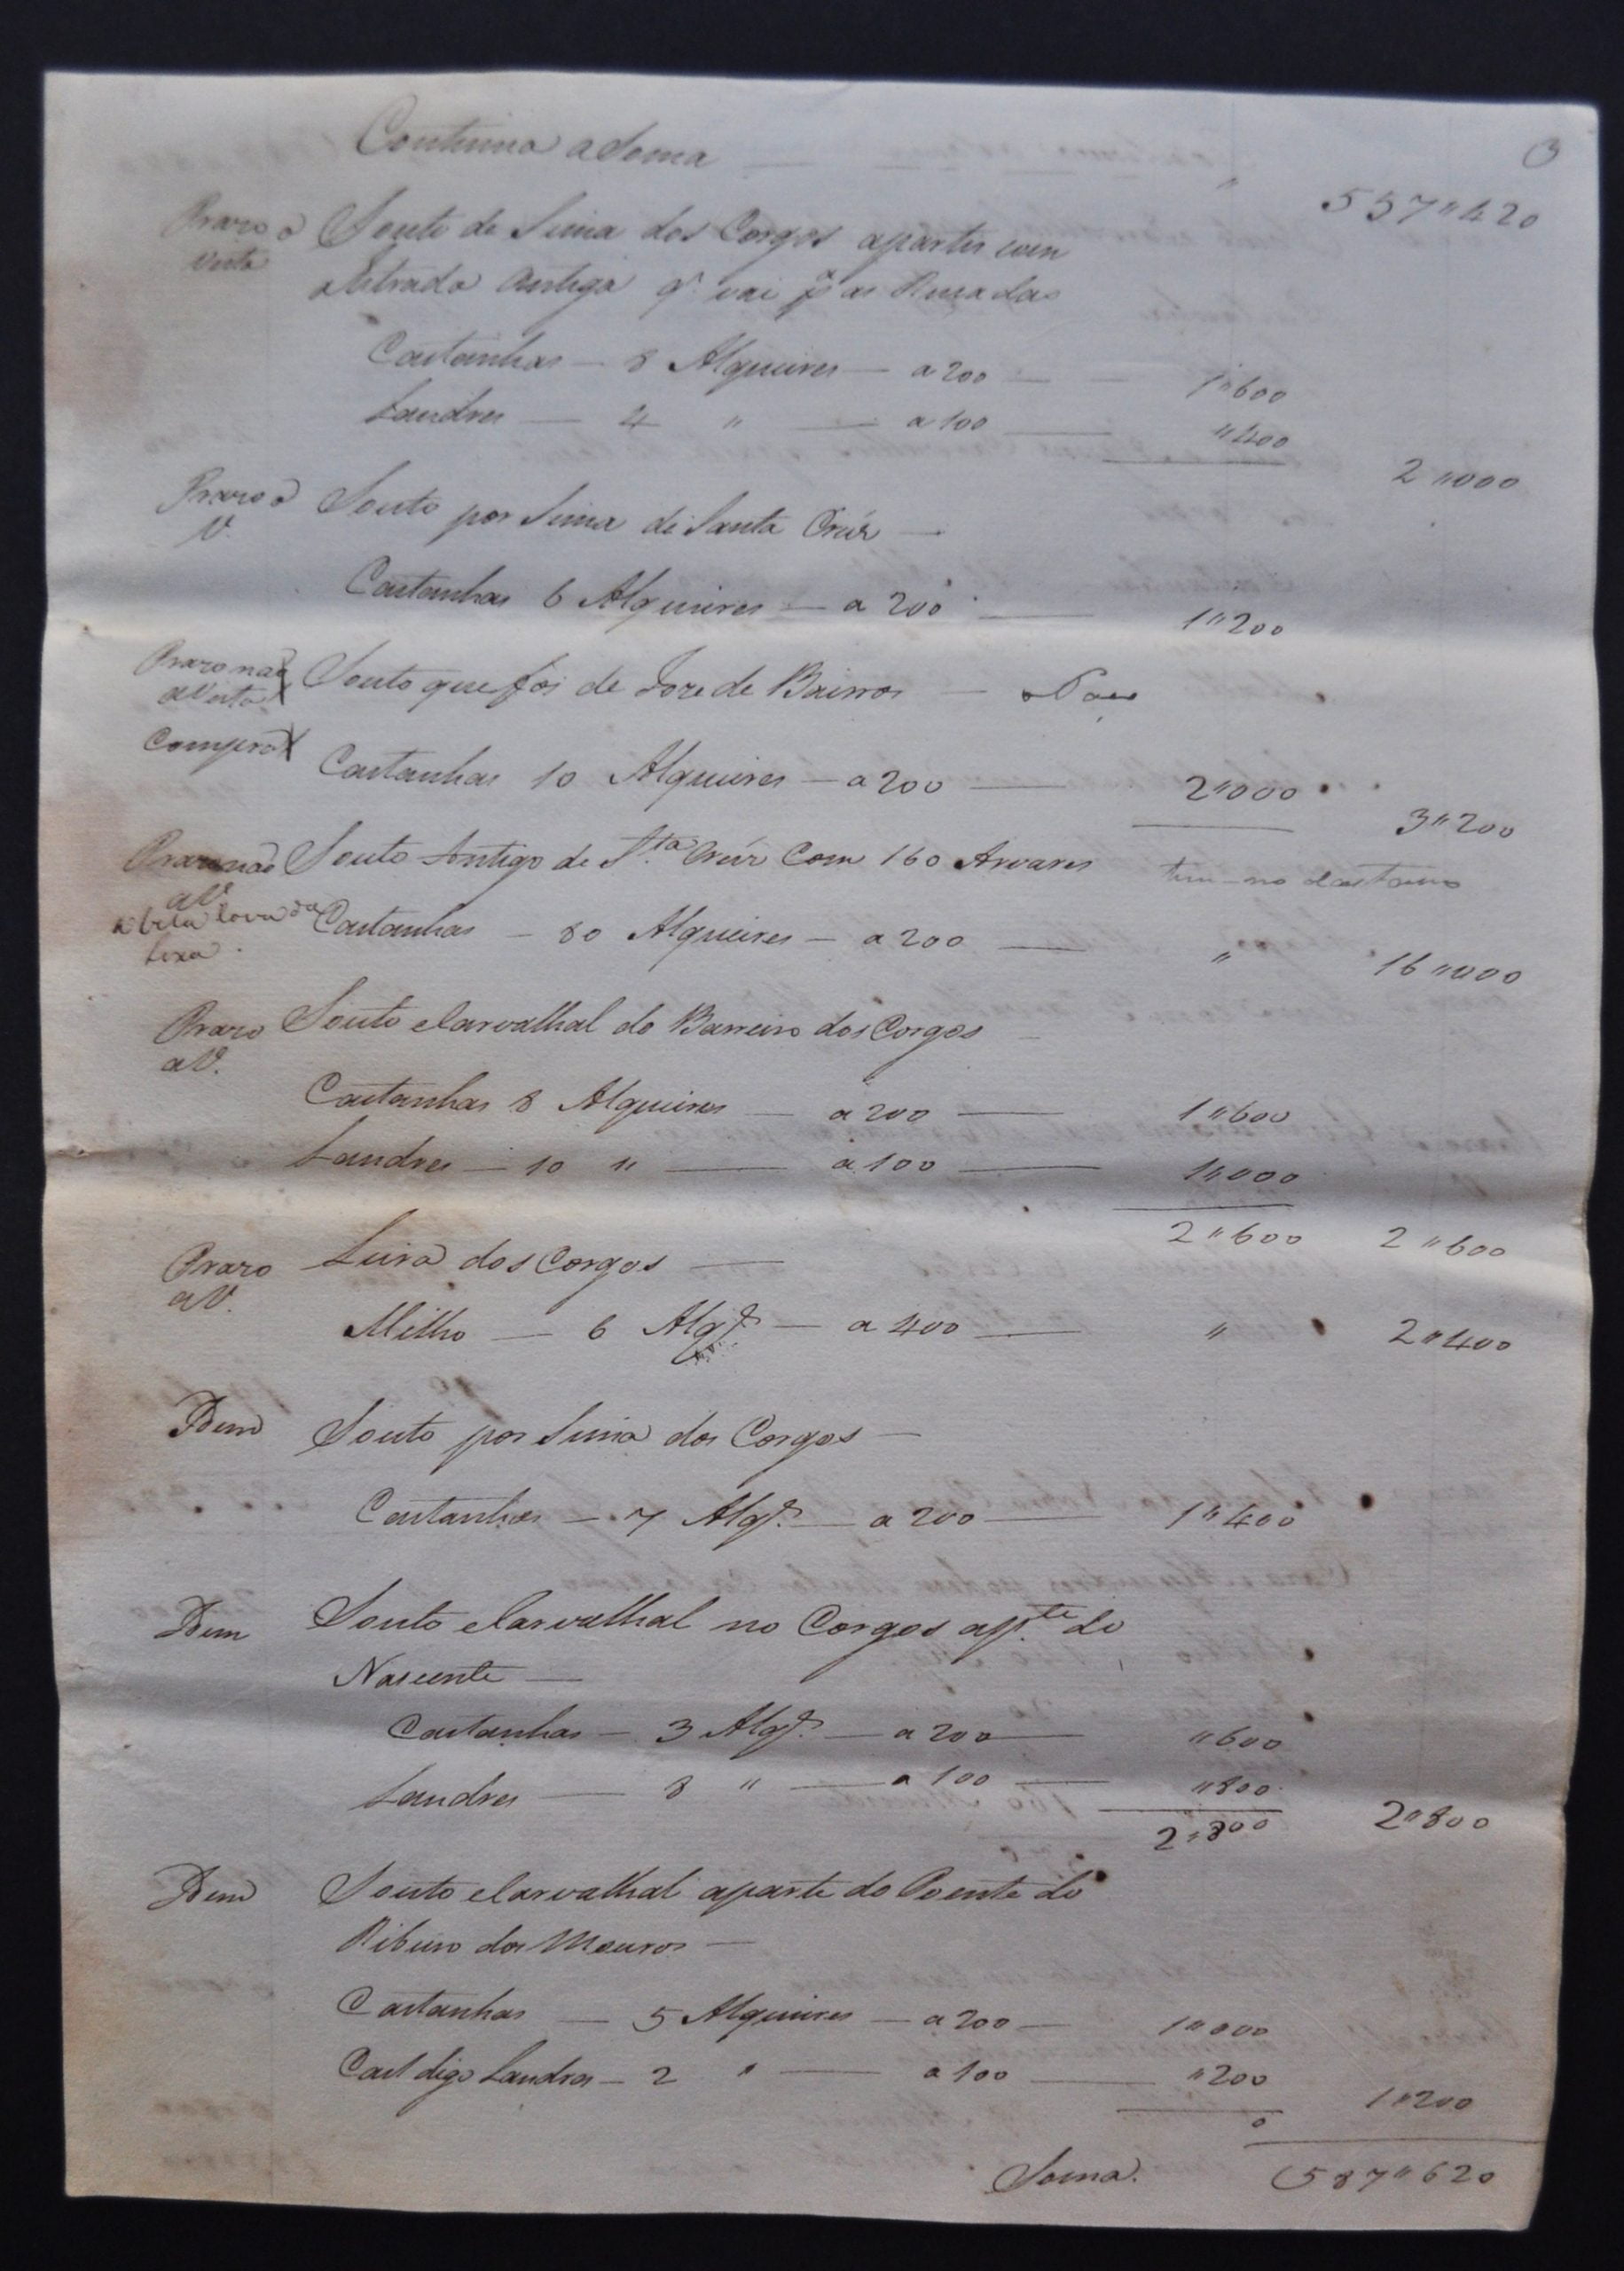 Continua a Soma
557"420
Prazo a Souto de Sima dos Corgos apartir com
Vista aEstrada Antiga q. vai pª as
Castanhas — 8 Alqueires — a 200 — 1"600
Landres — 4 " — a 100 — "400
2"000
Prazo a Souto por Sima de Santa Crúz —
V.
Castanhas 6 Alqueires — a 200 — 1"200
Prazo não Souto que foi de Joze de Bairros —
aVista
Compra Castanhas 10 Alqueires — a 200 — 2"000
3"200
Prazo não Souto Antigo de S.ta Crúz Com 160 Arvores
aV.
Castanhas — 80 Alqueires — a 200 — " 16"000
Prazo Souto eCarvalhal do Barreiro dos Corgos
aV.
Castanhas 8 Alqueires — a 200 — 1"600
Landres — 10 " — a 100 — 1"000
2"600 2"600
Prazo Leira dos Corgos —
aV.
Milho — 6 Alq.s — a 400 — " 2"400
Idem Souto por Sima dos Corgos —
Castanhas — 7 Alq.s — a 200 — 1"400
Idem Souto eCarvalhal no Corgos ap.te do
Nascente —
Castanhas — 3 Alq.s — a 200 — "600
Landres — 8 " — a 100 — "800
2"800 2"800
Idem Souto eCarvalhal aparte do Poente do
Ribeiro dos Mouros —
Castanhas — 5 Alqueires — a 200 — 1"000
Cast digo Landres — 2 " — a 100 — "200
1"200
Soma. 587"620